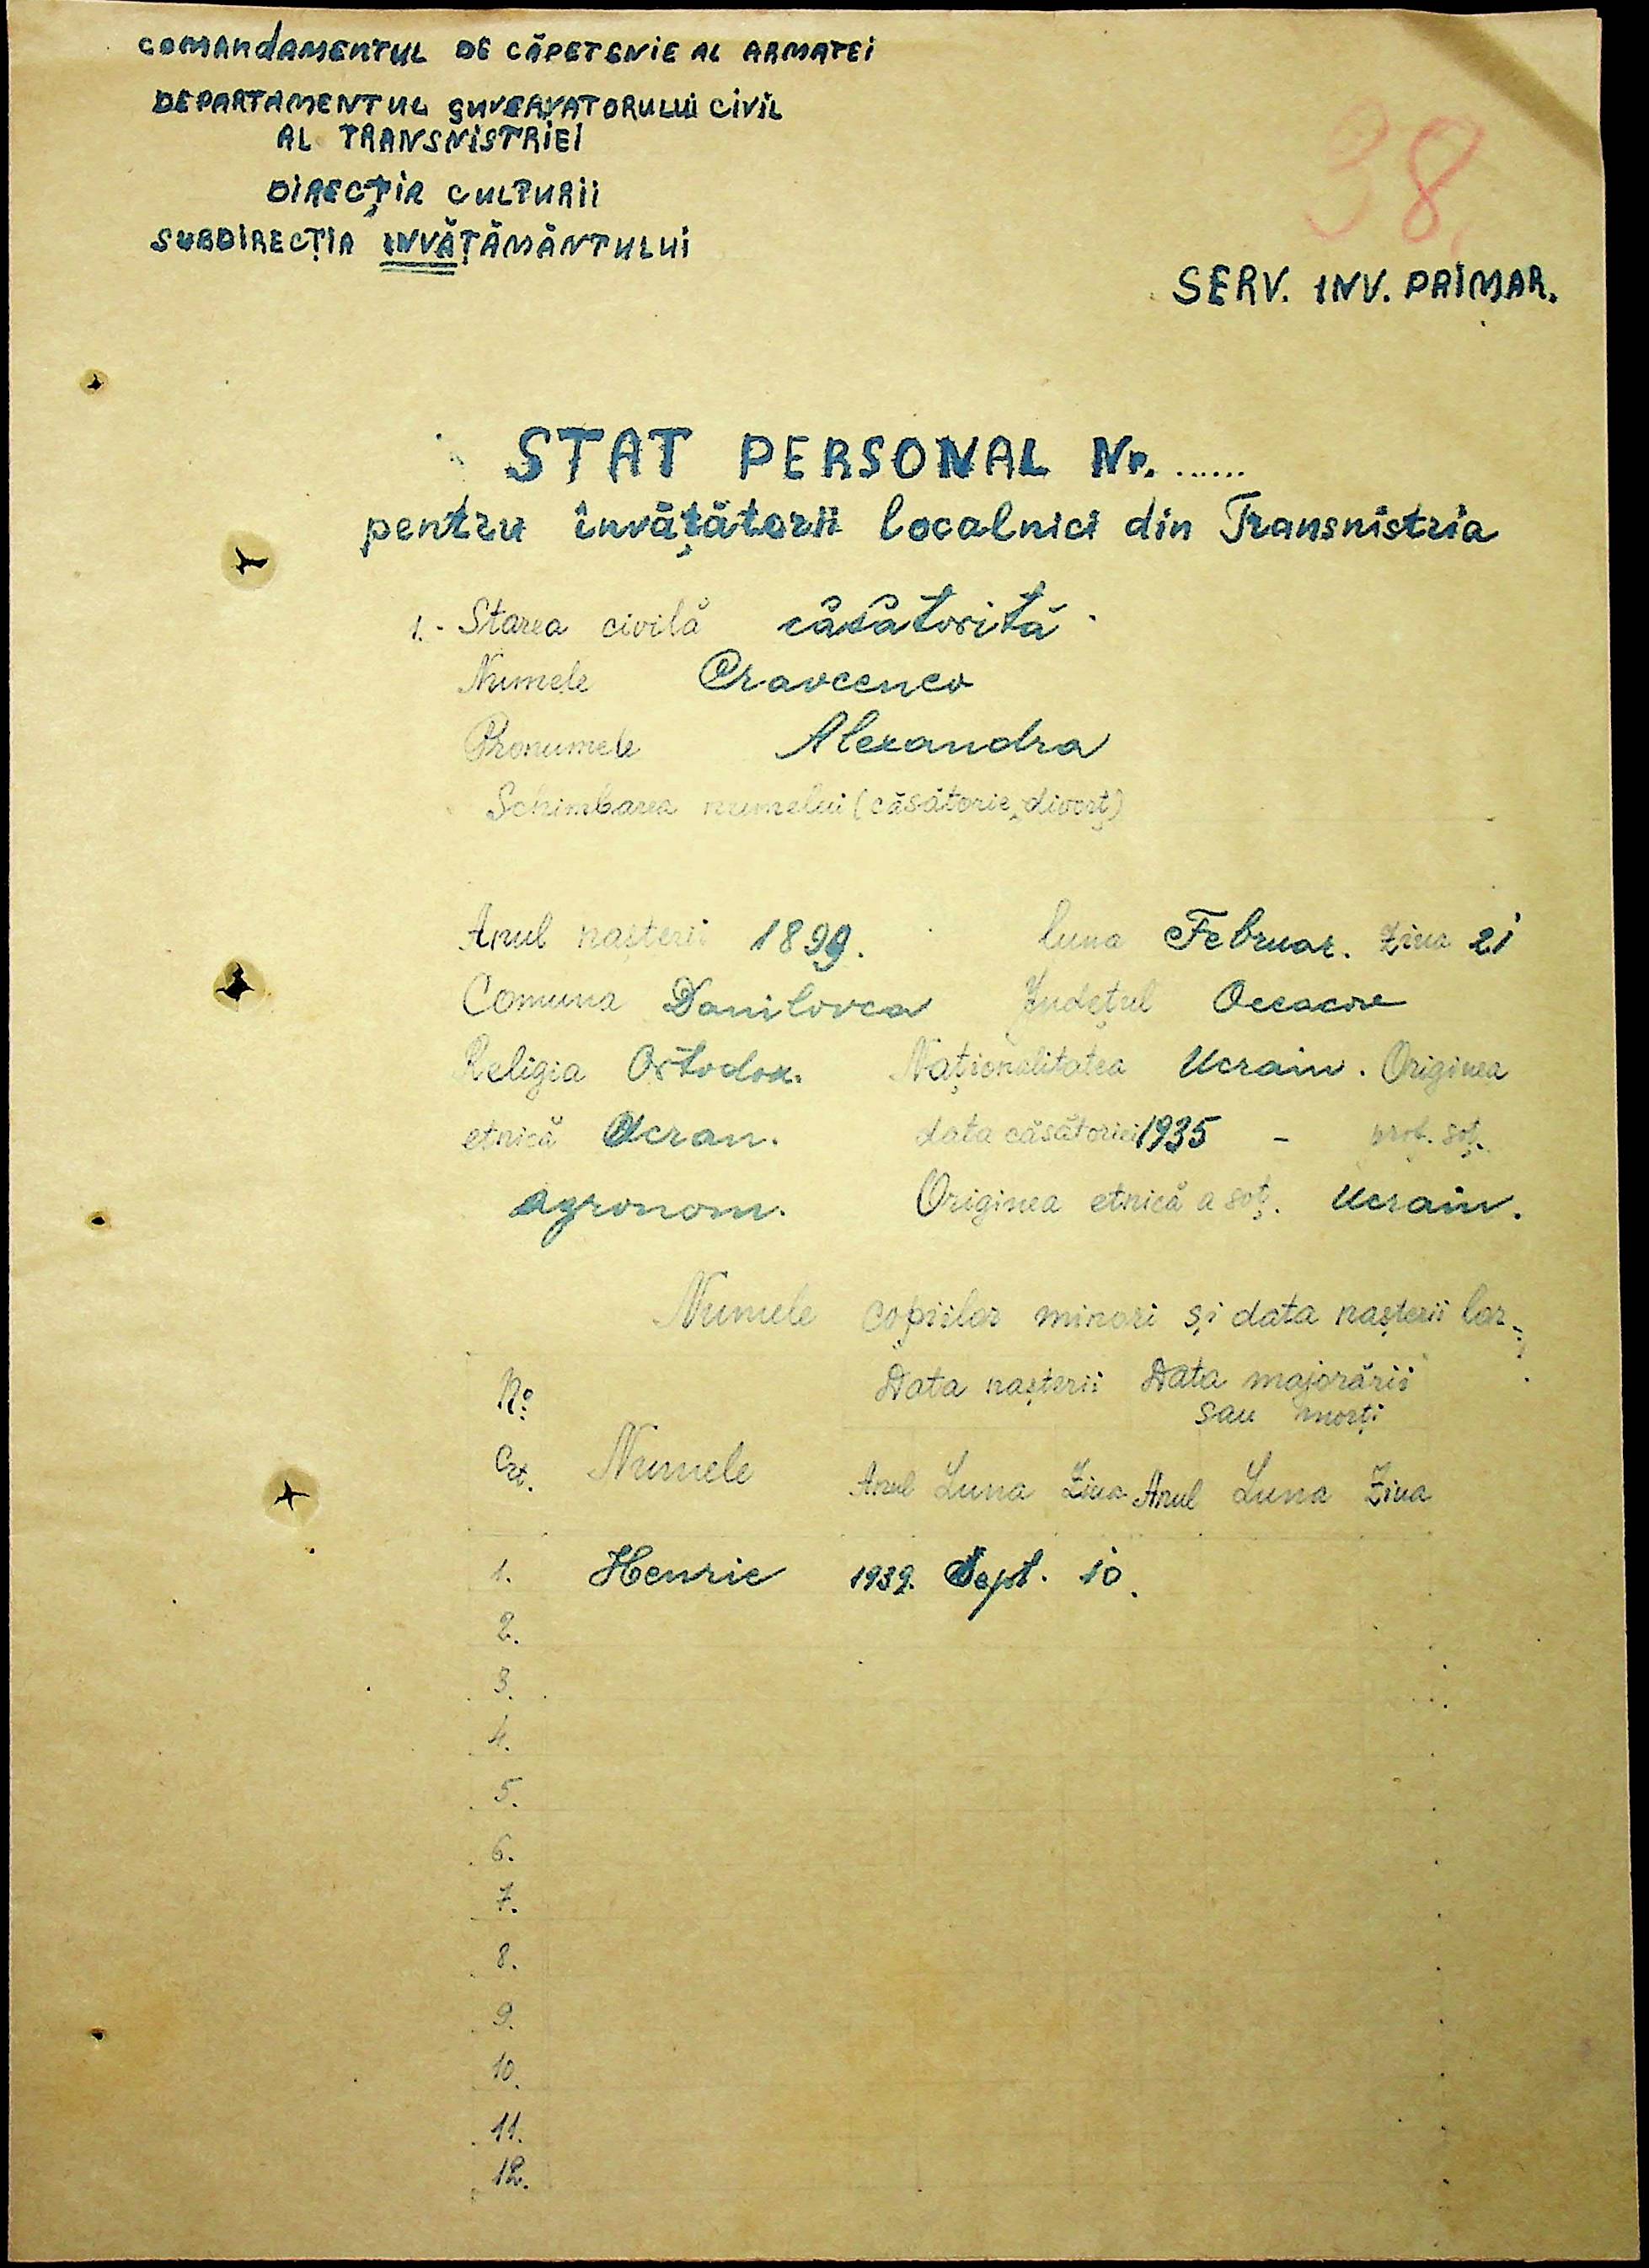 COMANDAMENTUL DE CĂPETENIE AL ARMATEI
DEPARTAMENTUL GUVERNATORULUI CIVIL
AL TRANSNISTRIEI
DIRECȚIA CULTURII
SUBDIRECȚIA INVĂȚĂMÂNTULUI
38.
SERV. INV. PRIMAR.
STAT PERSONAL Nr. ......
pentru învățătorii localnici din Transnistria
1.- Starea civilă căsătorită
Numele Cravcenco
Pronumele Alexandra
Schimbarea numelui (căsătorie, divorț)
Anul nașterii 1899. luna Februar. Ziua 21
Comuna Danilovca Județul Oceacov
Religia Ortodox. Naționalitatea Ucrain. Originea
etnică Ucran. data căsătoriei 1935 - prof. soț.
agronom. Originea etnică a soț. Ucrain.
Numele copiilor minori și data nașterii lor
No Data nașterii Data majorării
sau morți
Crt. Numele Anul Luna Ziua Anul Luna Ziua
1. Henric 1939. Sept. 10.
2.
3.
4.
5.
6.
7.
8.
9.
10.
11.
12.